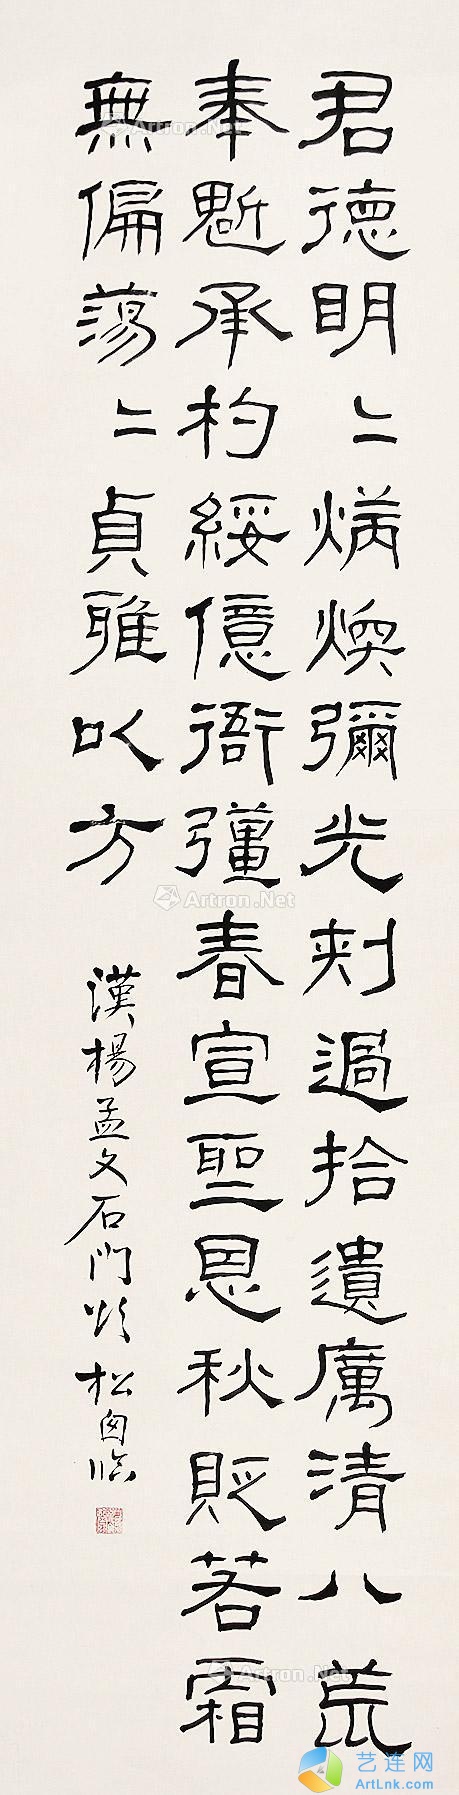 君德明〻炳煥彌光刺過拾遺厲清八荒
奉魁承杓綏億衙彊春宣聖恩秋貶若霜
無偏蕩〻貞雅以方
漢楊孟文石門頌 松囱臨
Artron.Net
Artron.Net
Artron.Net
Artron.Net
艺连网
ArtLnk.com